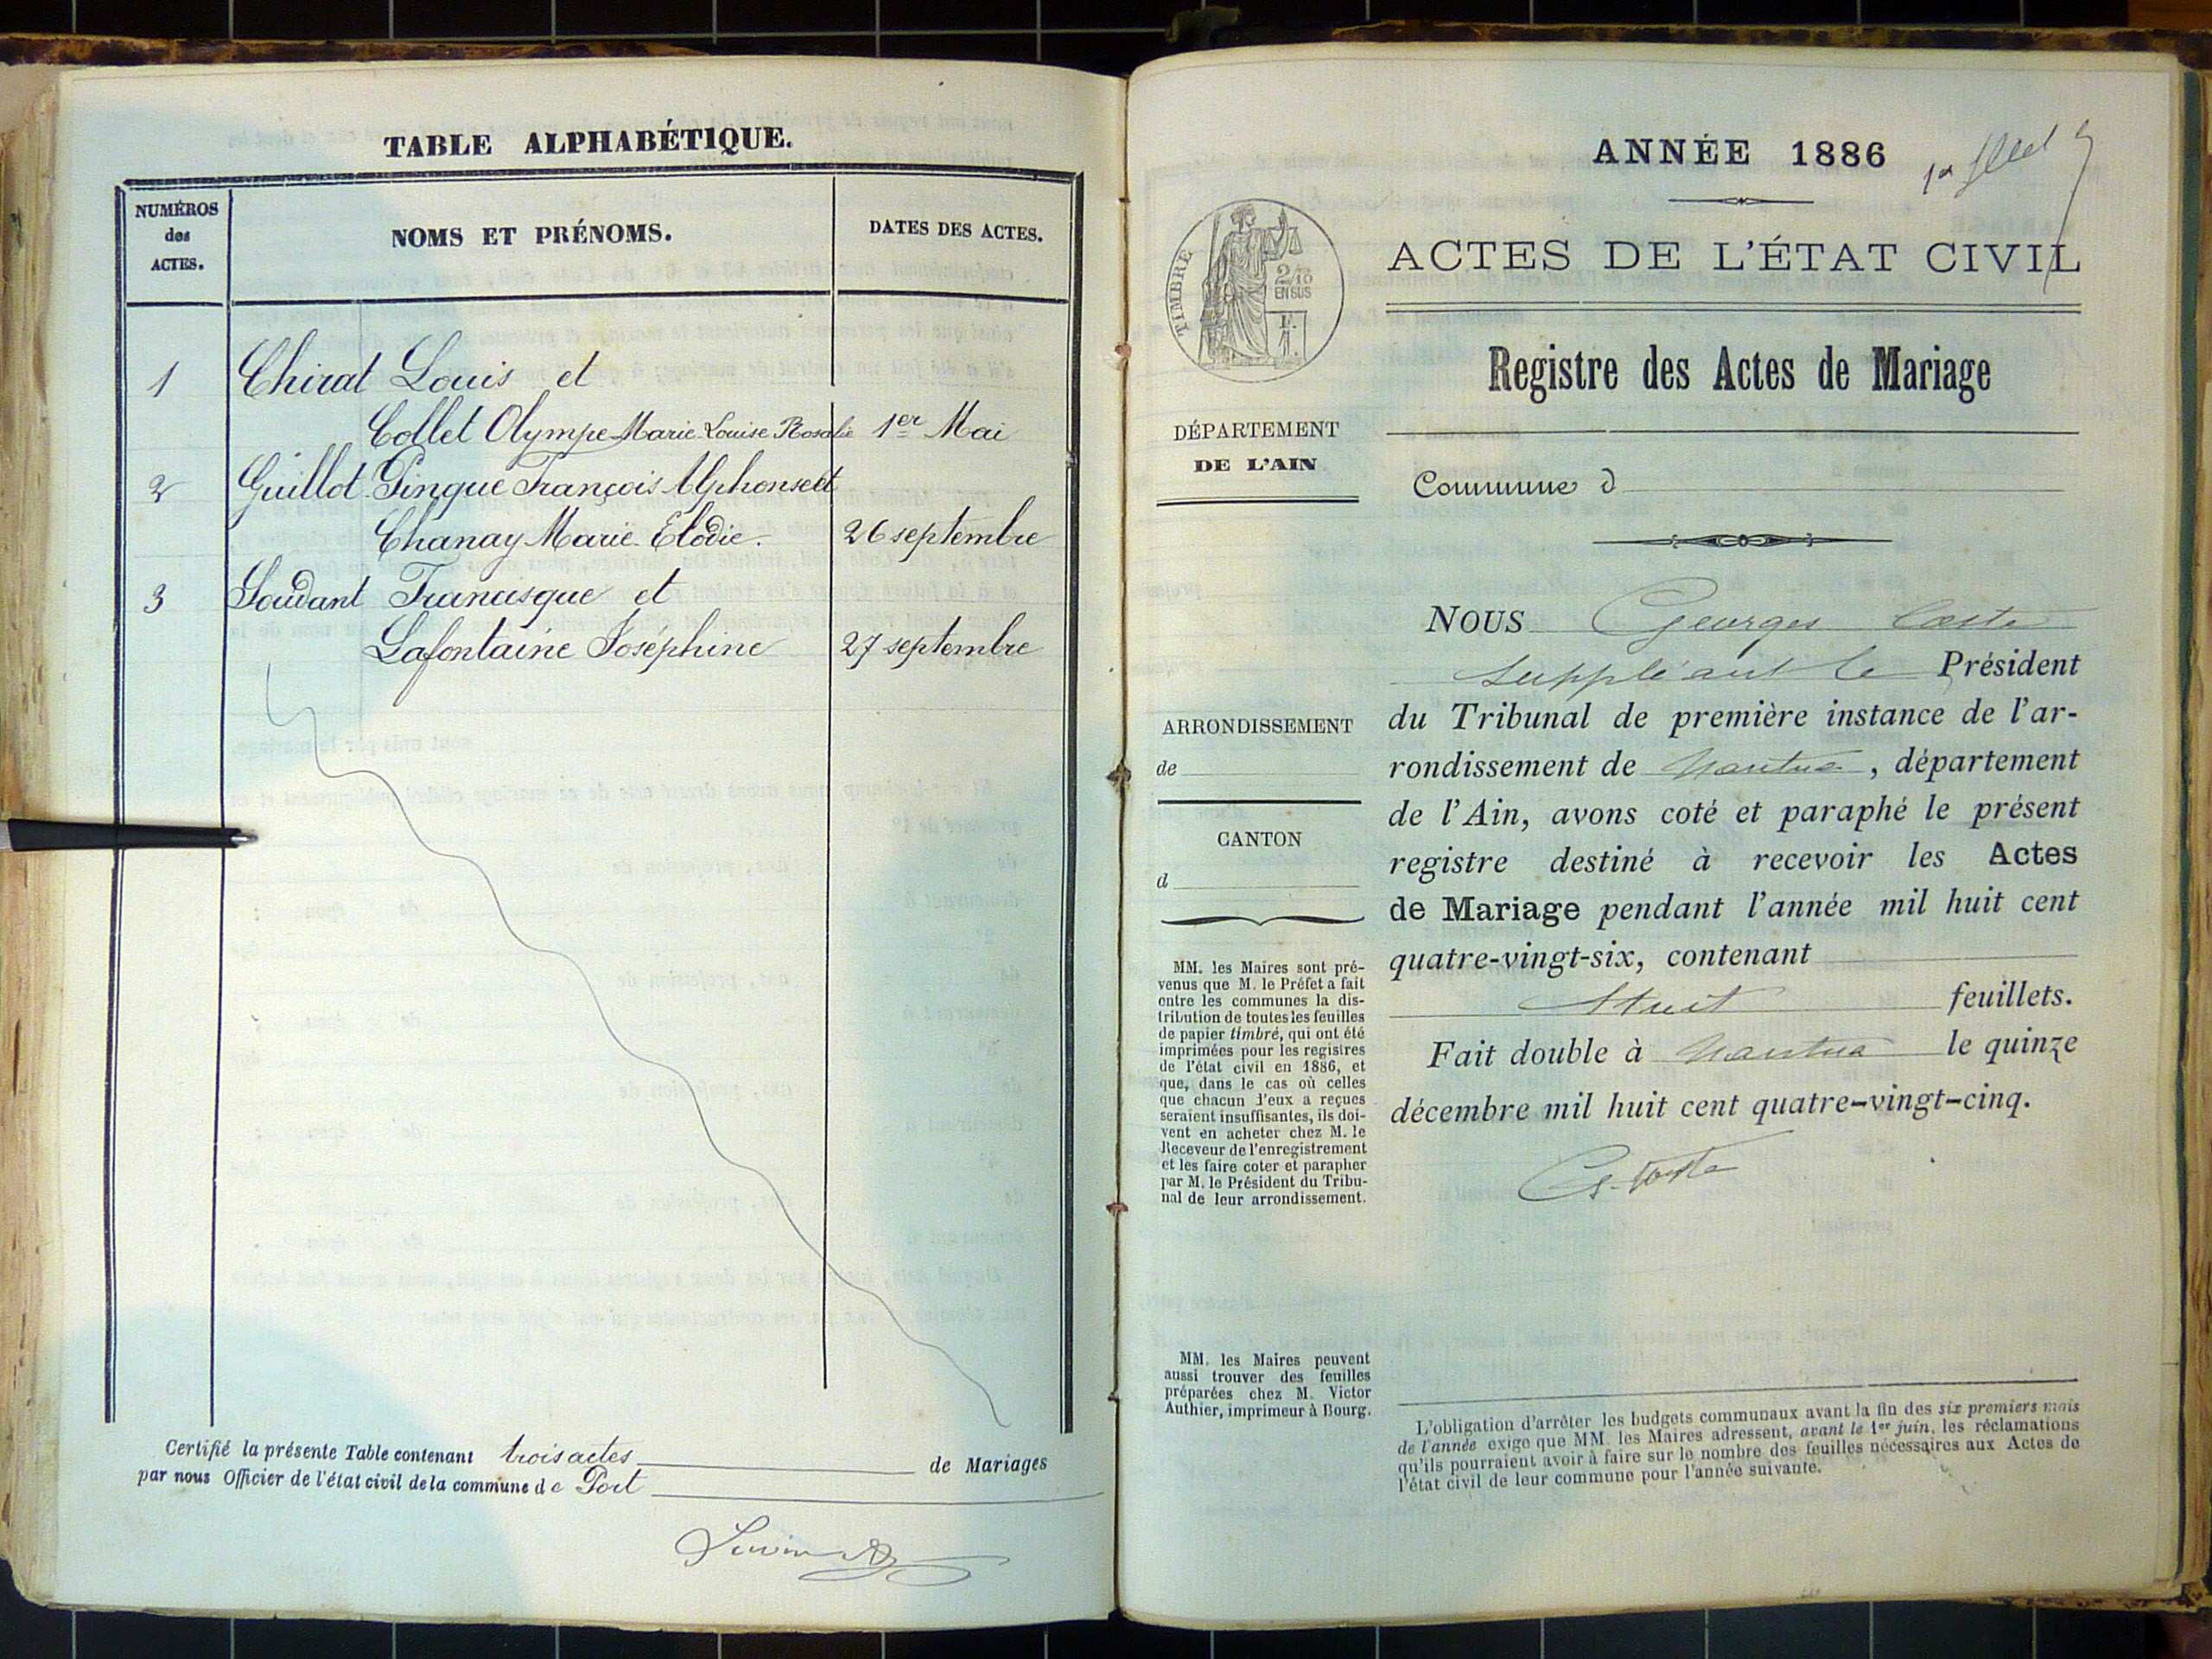 TABLE ALPHABÉTIQUE.
NUMÉROS
des
ACTES.
NOMS ET PRÉNOMS.
DATES DES ACTES.
1 Chirat Louis et
Collet Olympe Marie Louise Rosalie 1er Mai
2 Guillot Pingue François Alphonse et
Chanay Marie Elodie. 26 septembre
3 Soudant Francisque et
Lafontaine Joséphine 27 septembre
Certifié la présente Table contenant trois actes de Mariages
par nous Officier de l'état civil de la commune de Port
ANNÉE 1886
ACTES DE L'ÉTAT CIVIL
TIMBRE
2/10
EN SUS
Registre des Actes de Mariage
DÉPARTEMENT
DE L'AIN
Commune d
ARRONDISSEMENT
de
CANTON
d
MM. les Maires sont pré-
venus que M. le Préfet a fait
entre les communes la dis-
tribution de toutes les feuilles
de papier timbré, qui ont été
imprimées pour les registres
de l'état civil en 1886, et
que, dans le cas où celles
que chacun d'eux a reçues
seraient insuffisantes, ils doi-
vent en acheter chez M. le
Receveur de l'enregistrement
et les faire coter et parapher
par M. le Président du Tribu-
nal de leur arrondissement.
MM. les Maires peuvent
aussi trouver des feuilles
préparées chez M. Victor
Authier, imprimeur à Bourg.
NOUS Georges Coste
suppléant le Président
du Tribunal de première instance de l'ar-
rondissement de Nantua, département
de l'Ain, avons coté et paraphé le présent
registre destiné à recevoir les Actes
de Mariage pendant l'année mil huit cent
quatre-vingt-six, contenant
Huit feuillets.
Fait double à Nantua le quinze
décembre mil huit cent quatre-vingt-cinq.
G. Coste
L'obligation d'arrêter les budgets communaux avant la fin des six premiers mois
de l'année exige que MM. les Maires adressent, avant le 1er juin, les réclamations
qu'ils pourraient avoir à faire sur le nombre des feuilles nécessaires aux Actes de
l'état civil de leur commune pour l'année suivante.